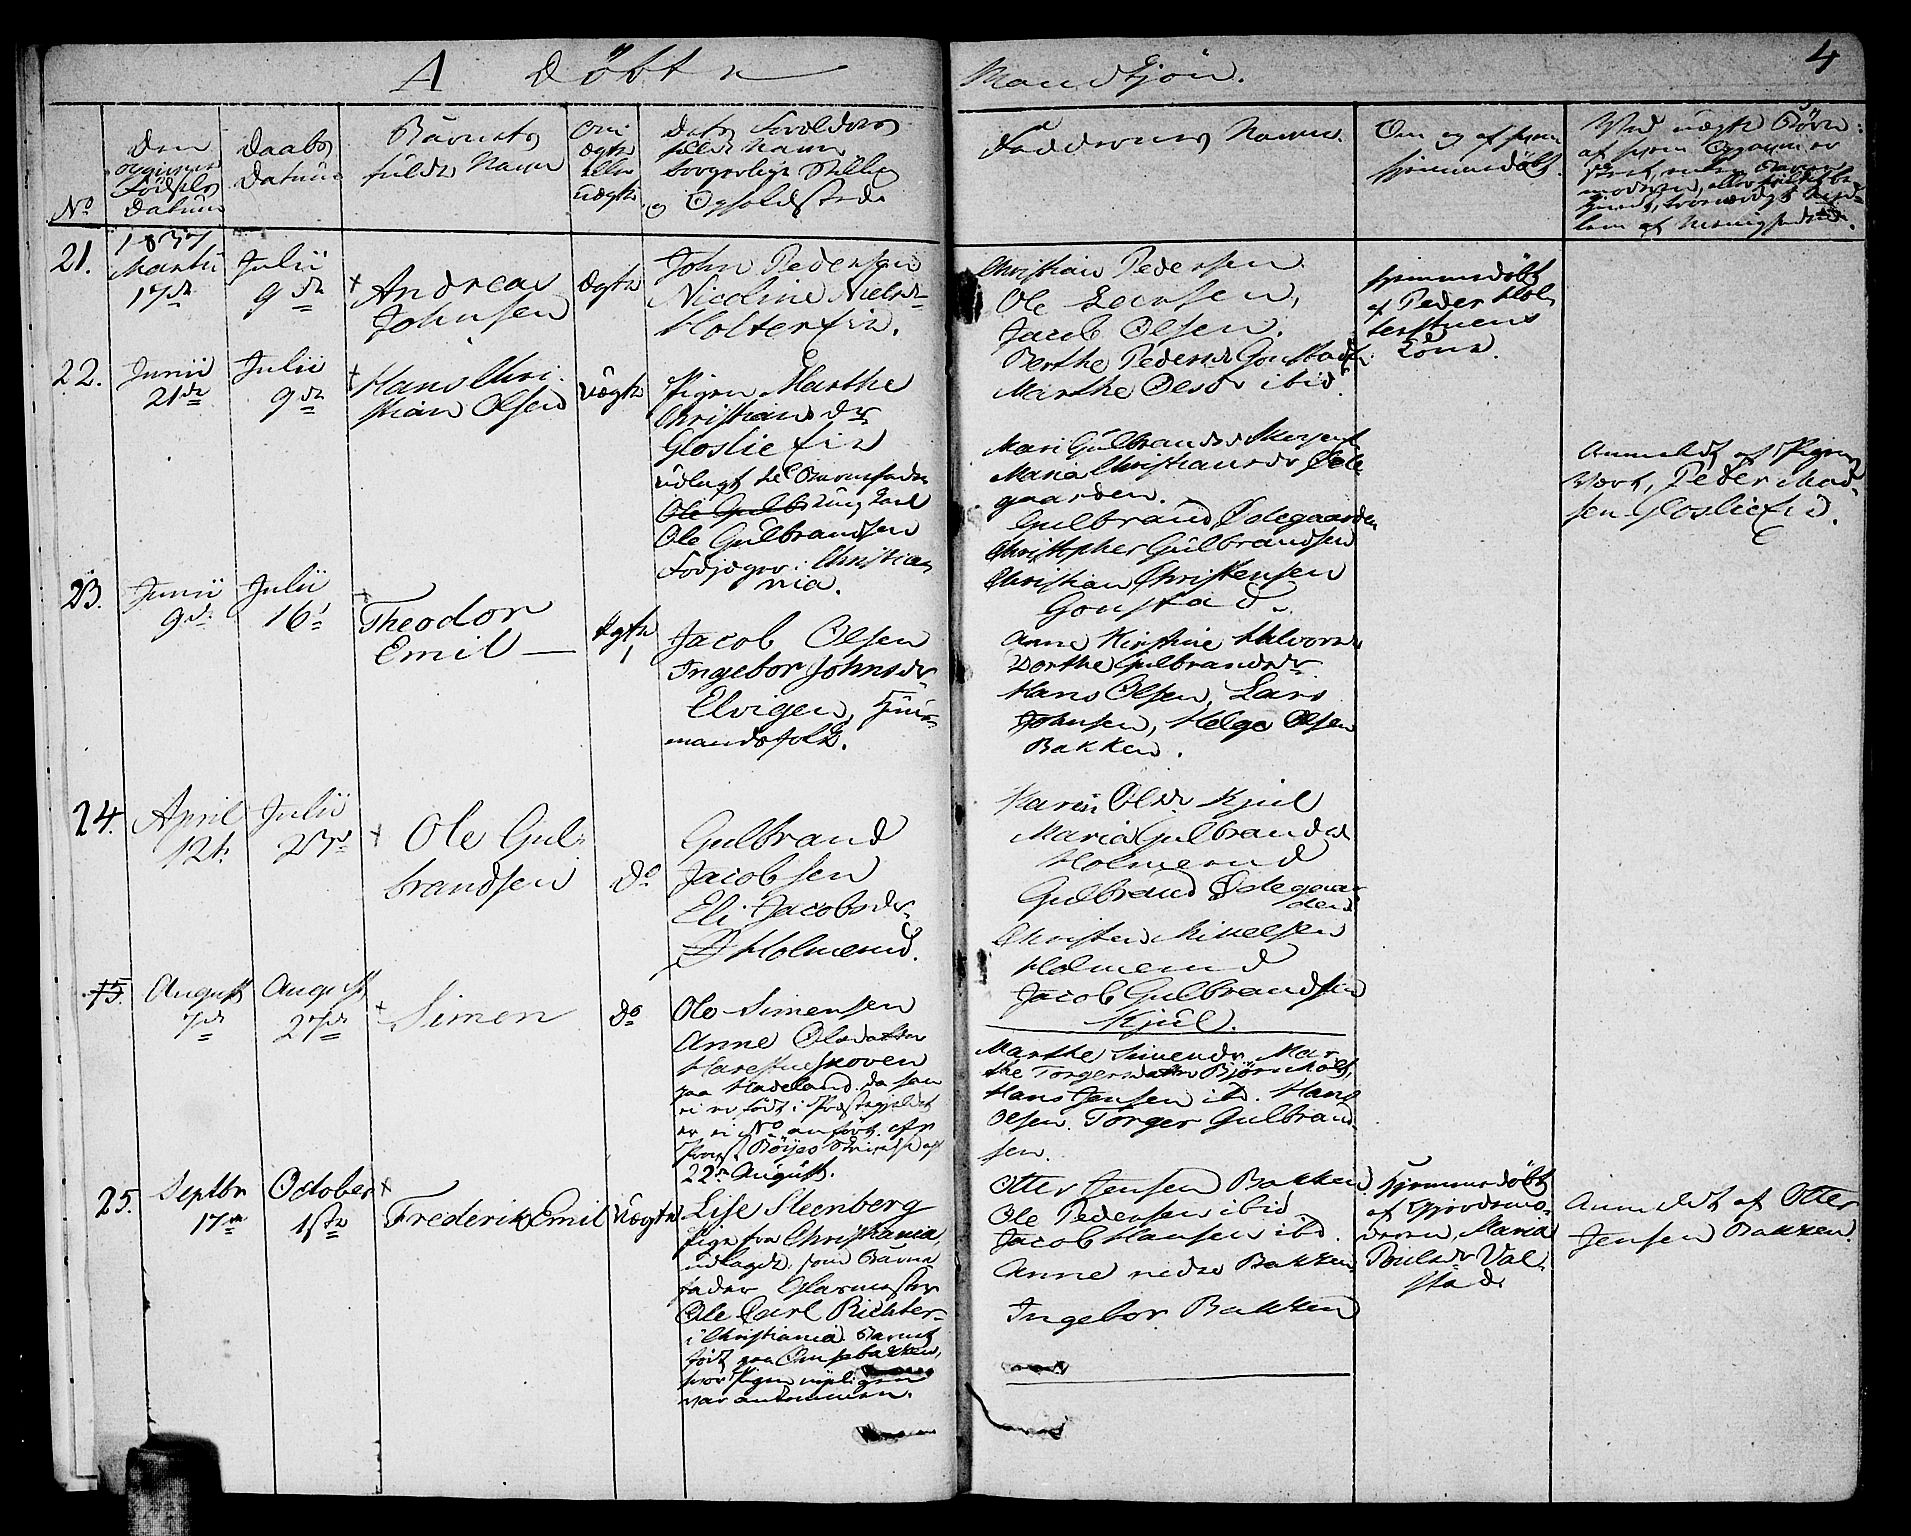 4
A Döbte Mandkjøn.
No
Den opgivne Födsels Datum
Daabs Datum
Barnets fulde Navn
Om ægte eller uægte
Dets Forældres fulde Navne borgerlige Stilling og Opholdssted
Faddernes Navne.
Om og af hvem hjemmedøbt.
Ved uægte Børn: af hvem
21.
1837
Martii
17de
Julii
9de
Andreas
Johnsen
Ægte
John Pedersen
Nicoline Nielsdr
Holter Eie.
Christian Pedersen
Ole Larsen,
Jacob Olsen.
Berthe Pedersd Gonstad
Marthe Olsdr ibid
hjemmedøbt
af Peder Hol
terstuens
Kone.
22.
Junii
21de
Julii
9de
Hans Chri-
stian Olsen
Uægte
Pigen Marthe
Christiansdr
Gloslie Eie
udlagt til Barnefader
Ole Gulb Ung Karl
Ole Gulbrandsen
Fodjæger i Christia
nia.
Mari Gulbrandsd
Maria Christiansdr Øde
gaarden.
Gulbrand Ødegaarden
Christopher Gulbrandsen
Christian Christensen
Gonstad.
Anmeldt af Pigens
Vært, Peder Mad-
sen Gloslie Eie.
23.
Junii
9de
Julii
16de
Theodor
Emil —
Ægte
Jacob Olsen
Ingebor Johnsdr
Elvigen, Huus-
mandsfolk.
Anne Kirstine Halvorsd
Dorthe Gulbrandsdr
Hans Olsen, Lars
Johnsen, Helge Olsen
Bakken.
24.
April
12te
Julii
23de
Ole Gul-
brandsen
do
Gulbrand
Jacobsen
Eli Jacobsdr
Holmerud.
Karen Olsdr Kjul
Maria Gulbrandsd
Holmerud
Gulbrand Ødegaar
den
Christen Mikelsen
Holmerud
Jacob Gulbrandsen
Kjul.
15.
August
7de
August
27de
Simen
do
Ole Simensen
Anne Olsdatter
Harestueskoven
paa Hadeland. Da han
ei er födt i Præstegjeldet
er ei No anført, efter
22de August.
Marthe Simensdr, Mar
the Torgersdatter Bjørnholt,
Hans Jensen ibd. Hans
Olsen. Torger Gulbrand-
sen.
25.
Septbr
17de
October
1ste
Frederik Emil
Uægte
Lise Steenberg
Pige fra Christiania,
udlagt som Barne
fader Glarmester
Ole Carl Richter
i Christiania. Barnet
födt paa Onsebakken,
hvor Pigen nyeligen
var ankommen.
Otter Jensen Bakken
Ole Pedersen ibid
Jacob Hansen ibd.
Anne nedre Bakken
Ingebor Bakken
Hjemmedöbt
af Gjordemo-
deren, Maria
Poulsdr Val-
stad.
Anmeldt af Otter
Jensen Bakken.